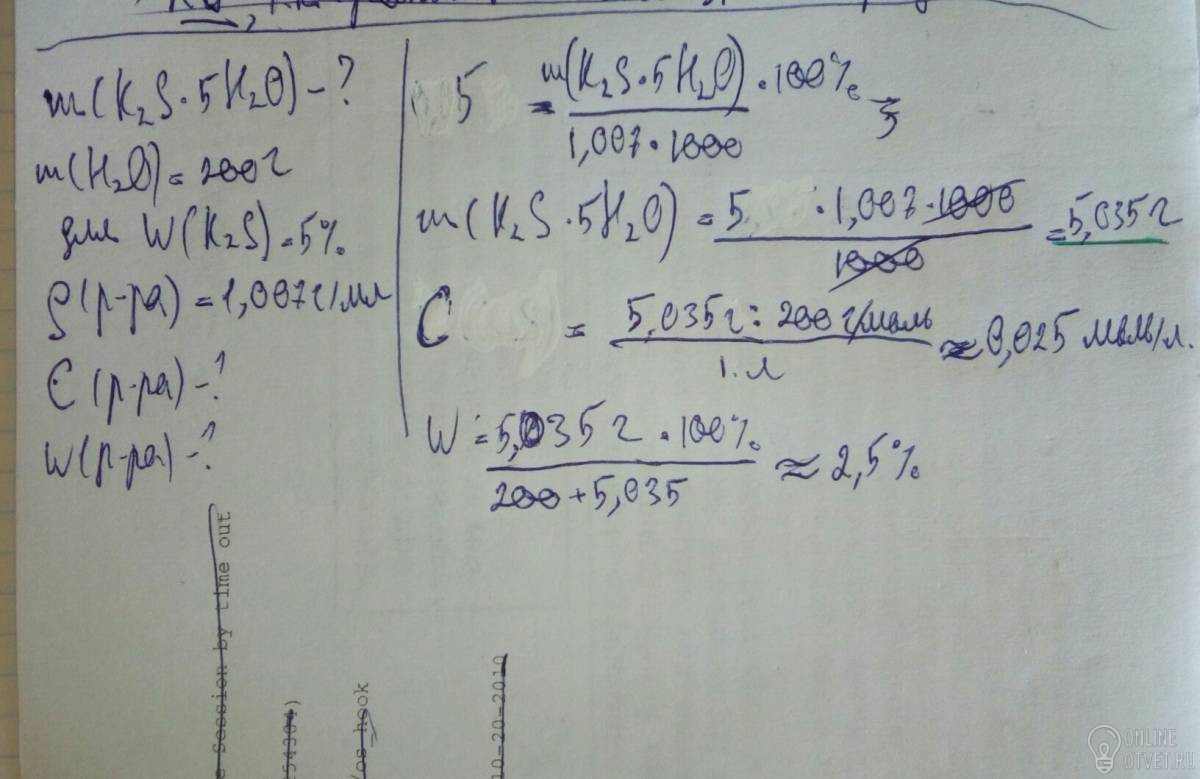 m(K₂S·5H₂O)-?
m(H₂O)=200г
для W(K₂S)=5%
ρ(р-ра)=1,007г/мл
C(р-ра)-?
W(р-ра)-?
5 = m(K₂S·5H₂O)·100% / 1,007·1000 ;
m(K₂S·5H₂O) = 5 · 1,007·1000 / 1000 = 5,035г
C = 5,035г : 200г/моль / 1 л ≈ 0,025 моль/л.
W = 5,035г · 100% / 200+5,035 ≈ 2,5%
session by time out
54304)
/os hook
10-20-2010
ONLINE
OTVET.RU